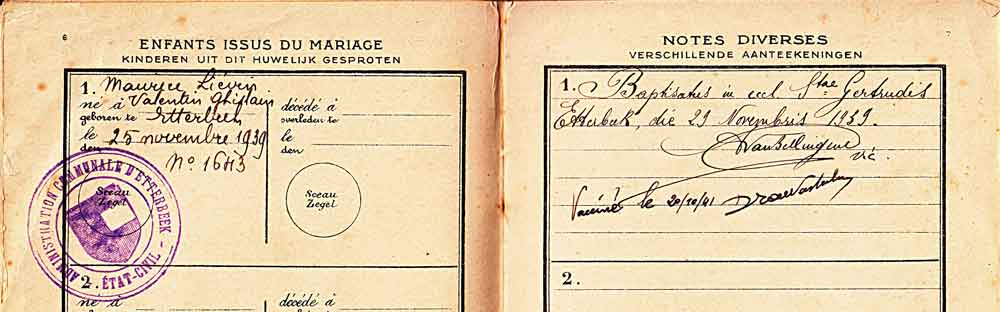 6
ENFANTS ISSUS DU MARIAGE
KINDEREN UIT DIT HUWELIJK GESPROTEN
1. Maurice Liévin
né à Valentin Ghislain
geboren te Etterbeek
le 25 novembre 1939
den
N° 1643
décédé à
overleden te
le
den
Sceau
Zegel
Sceau
Zegel
ADMINISTRATION COMMUNALE D'ETTERBEEK
- ÉTAT-CIVIL -
2.
né à
décédé à
NOTES DIVERSES
VERSCHILLENDE AANTEEKENINGEN
1. Baptisatus in eccl Stae Gertrudis
Etterbeek, die 29 Novembris 1939.
vic.
Vacciné le 20/10/41
2.